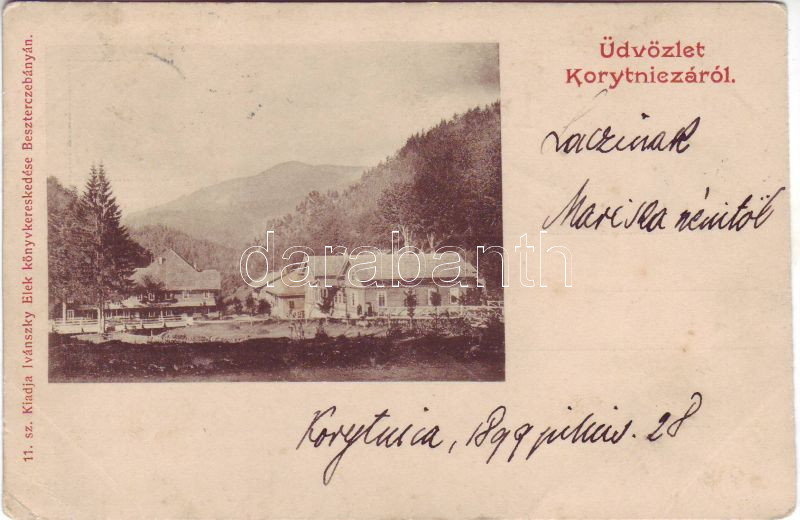 Üdvözlet
Korytniczáról.
Laczinak
Mariska nénitől
darabanth
Korytnica, 1899 julius. 28
11. sz. Kiadja Ivánszky Elek könyvkereskedése Beszterczebányán.